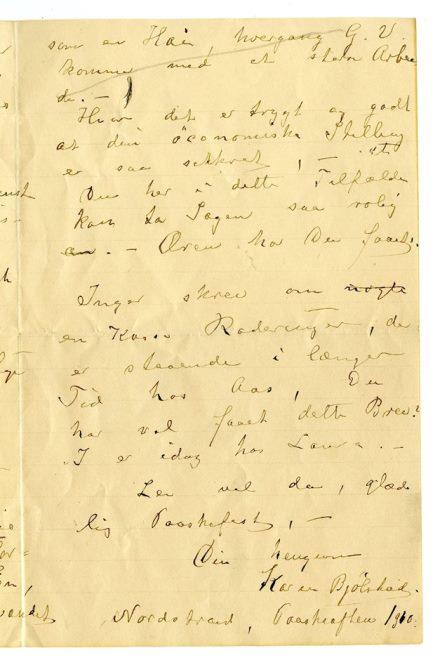 som en Haan, hvergang G. V.
kommer med et stort Arbei
de. –
Hvor det er trygt og godt
at din öconomiske Stilling
er saa sikkret, – at
Du her i dette Tilfælde
kan ta Sagen saa rolig
an. – Æren har Du faaet.
Inger skrev om nogle
en Kasse Raderinger, der
er staaende i længer
Tid hos Aas, Du
har vel faaet dette Brev?
I er idag hos Laura. –
Lev vel da, glæde
lig Paaskefest, –
Din hengivne
Karen Bjölstad.
Nordstrand, Paaskeaften 1910.